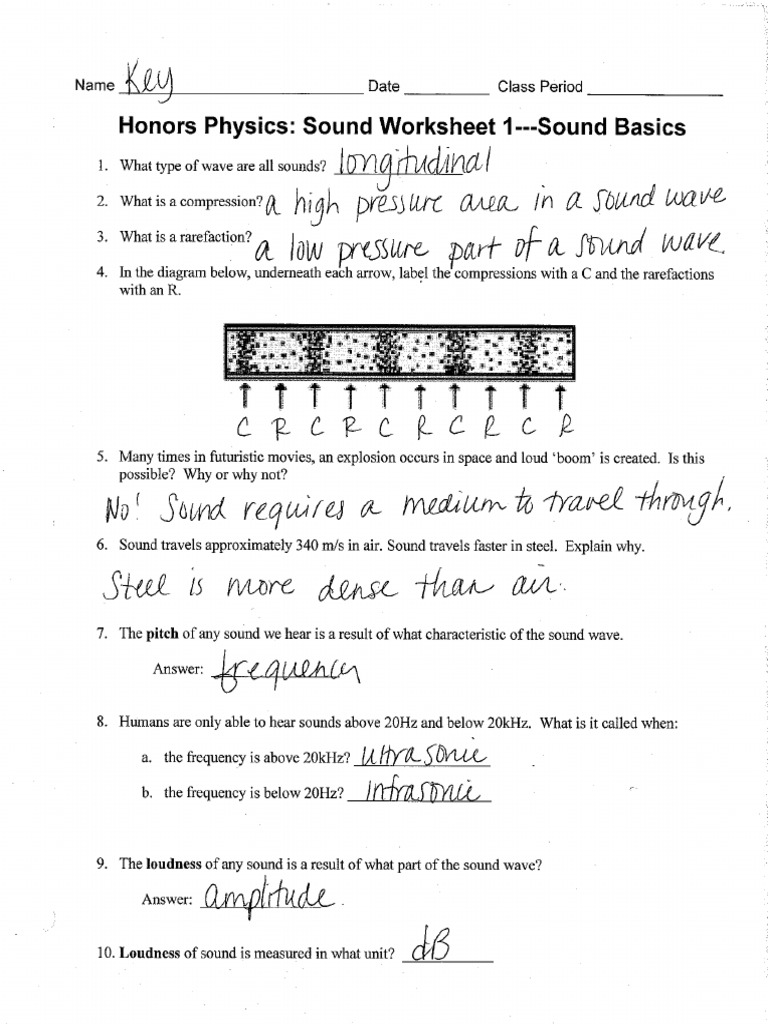 Name Key Date Class Period
Honors Physics: Sound Worksheet 1---Sound Basics
1. What type of wave are all sounds? longitudinal
2. What is a compression? a high pressure area in a sound wave
3. What is a rarefaction? a low pressure part of a sound wave.
4. In the diagram below, underneath each arrow, label the compressions with a C and the rarefactions
with an R.
C R C R C R C R C R
5. Many times in futuristic movies, an explosion occurs in space and loud ‘boom’ is created. Is this
possible? Why or why not?
No! Sound requires a medium to travel through.
6. Sound travels approximately 340 m/s in air. Sound travels faster in steel. Explain why.
Steel is more dense than air.
7. The pitch of any sound we hear is a result of what characteristic of the sound wave.
Answer: frequency
8. Humans are only able to hear sounds above 20Hz and below 20kHz. What is it called when:
a. the frequency is above 20kHz? ultrasonic
b. the frequency is below 20Hz? infrasonic
9. The loudness of any sound is a result of what part of the sound wave?
Answer: amplitude.
10. Loudness of sound is measured in what unit? dB